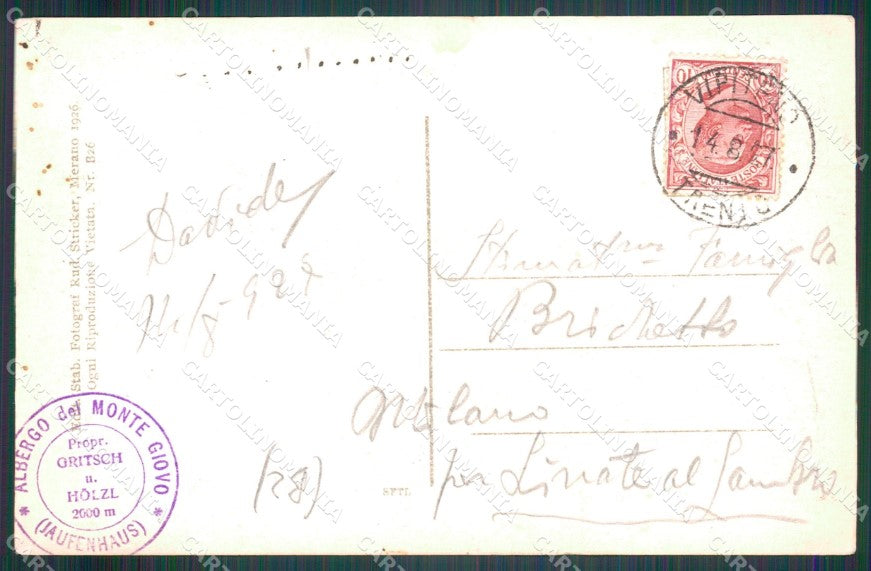 VIPITENO
14.8.27
TRENTO
10
Stab. Fotograf Rud. Stricker, Merano 1926.
Ogni Riproduzione Vietata. Nr. B26
Davide
Famiglia
Brichetto
Milano
per Linate al Lambro
(28)
SFTL
* ALBERGO del MONTE GIOVO *
Propr.
GRITSCH
u.
HÖLZL
2000 m
(JAUFENHAUS)
CARTOLINOMANIA